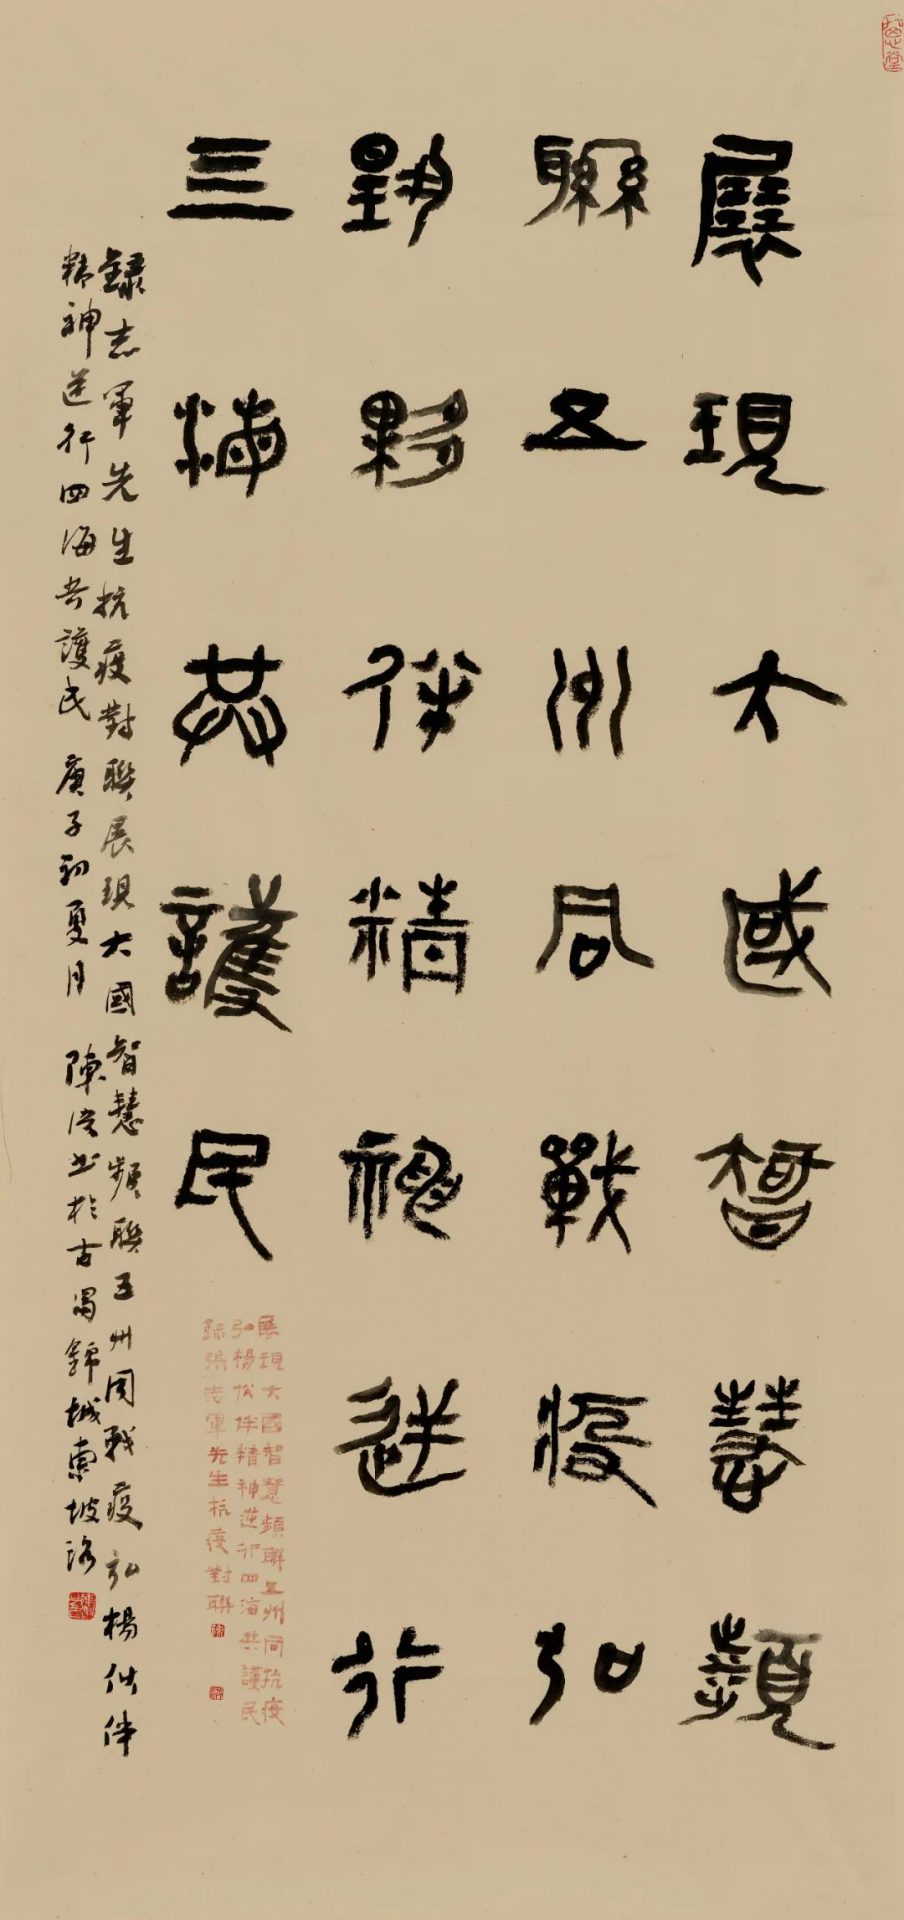 展現大國智慧頻
聯五州同戰疫弘
揚夥伴精神逆行
亖海共護民
錄志軍先生抗疫對聯展現大國智慧頻聯五州同戰疫弘楊伙伴
精神逆行四海共護民 庚子初夏月 陳 書於古蜀錦城東坡路
展現大國智慧頻聯五州同抗疫
弘楊伙伴精神逆行四海共護民
錄張志軍先生抗疫對聯